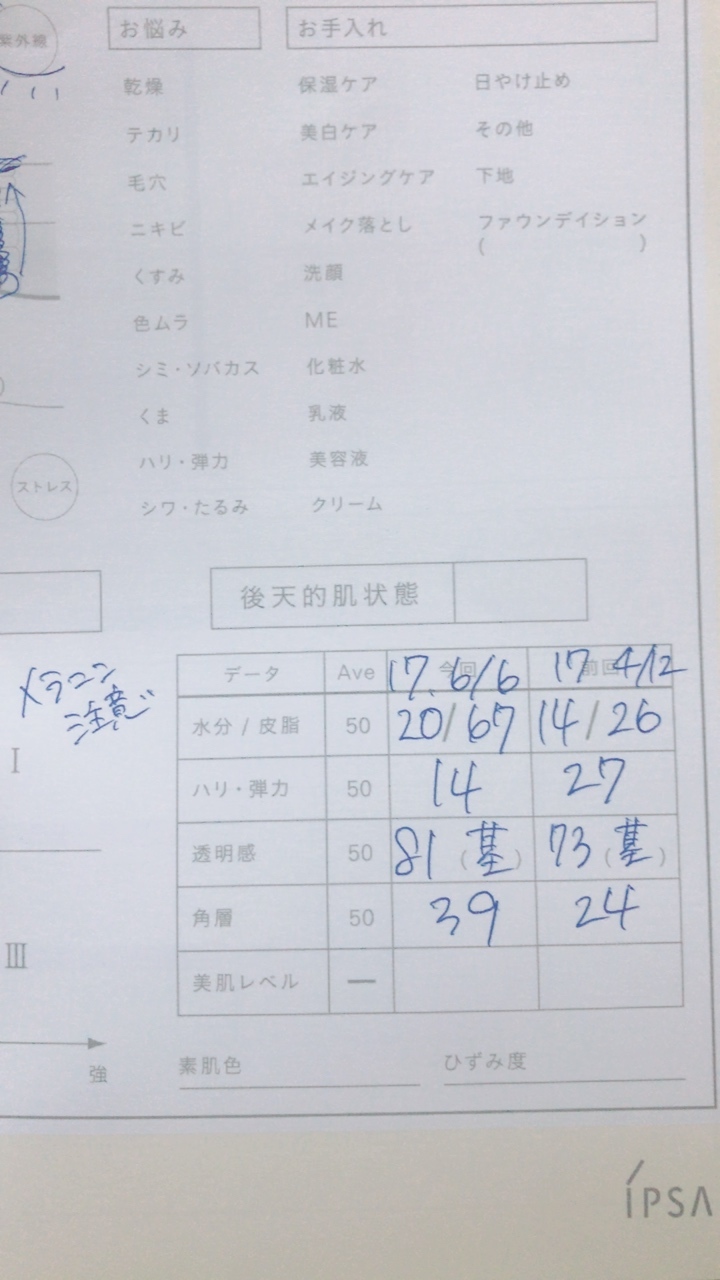 紫外線
お悩み
お手入れ
乾燥
保湿ケア
日やけ止め
テカリ
美白ケア
その他
毛穴
エイジングケア
下地
ニキビ
メイク落とし
ファウンデイション
( )
くすみ
洗顔
色ムラ
ME
シミ・ソバカス
化粧水
くま
乳液
ハリ・弾力
美容液
シワ・たるみ
クリーム
ストレス
後天的肌状態
メラニン
注意
データ Ave 今回 17.6/6 前回 17 4/12
水分 / 皮脂 50 20/67 14/26
ハリ・弾力 50 14 27
透明感 50 81 (基) 73 (基)
角層 50 39 24
美肌レベル —
I
III
強
素肌色
ひずみ度
IPSA